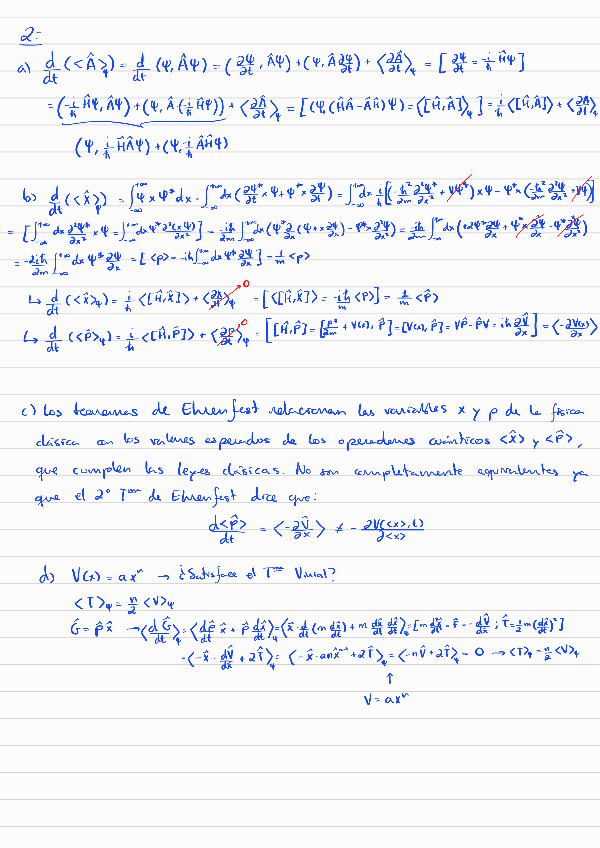 2:
a) d/dt (<Â>_ψ) = d/dt (ψ, Âψ) = (∂ψ/∂t, Âψ) + (ψ, Â ∂ψ/∂t) + <∂Â/∂t>_ψ = [∂ψ/∂t = -i/ħ Ĥψ]
= (-i/ħ Ĥψ, Âψ) + (ψ, Â·(-i/ħ Ĥψ)) + <∂Â/∂t>_ψ = [(ψ, (ĤÂ - ÂĤ)ψ) = <[Ĥ,Â]>_ψ] = i/ħ <[Ĥ,Â]> + <∂Â/∂t>_ψ
(ψ, i/ħ ĤÂψ) + (ψ, i/ħ ÂĤψ)
b) d/dt (<x̂>_ψ) = ∫_{-∞}^{+∞} ψ x ψ* dx = ∫_{-∞}^{+∞} dx (∂ψ*/∂t x ψ + ψ* x ∂ψ/∂t) = ∫_{-∞}^{+∞} dx i/ħ [(-ħ²/2m ∂²ψ*/∂x² + Vψ*) x ψ - ψ* x (-ħ²/2m ∂²ψ/∂x² + Vψ)]
= [∫_{-∞}^{+∞} dx ∂²ψ*/∂x² x ψ = ∫_{-∞}^{+∞} dx ψ* ∂²(xψ)/∂x²] = -iħ/2m ∫_{-∞}^{+∞} dx (ψ* ∂/∂x (ψ + x ∂ψ/∂x) - ψ* x ∂²ψ/∂x²) = -iħ/2m ∫_{-∞}^{+∞} dx (+2ψ* ∂ψ/∂x + ψ* x ∂²ψ/∂x² - ψ* x ∂²ψ/∂x²)
= -2iħ/2m ∫_{-∞}^{+∞} dx ψ* ∂ψ/∂x = [<p> = -iħ ∫_{-∞}^{+∞} dx ψ* ∂ψ/∂x] = 1/m <p>
↳ d/dt (<x̂>_ψ) = i/ħ <[Ĥ,x̂]> + <∂x̂/∂t>_ψ → 0 = [<[Ĥ,x̂]> = -iħ/m <p>] = 1/m <p̂>
↳ d/dt (<p̂>_ψ) = i/ħ <[Ĥ,P̂]> + <∂p̂/∂t>_ψ → 0 = [[Ĥ,P̂] = [P²/2m + V(x), P̂] = [V(x), P̂] = VP̂ - P̂V = iħ ∂V̂/∂x] = <-∂V(x)/∂x>
c) Los teoremas de Ehrenfest relacionan las variables x y p de la física
clásica con los valores esperados de los operadores cuánticos <x̂> y <p̂>,
que cumplen las leyes clásicas. No son completamente equivalentes ya
que el 2º Tᵐᵃ de Ehrenfest dice que:
d<p̂>/dt = <-∂V̂/∂x> ≠ - ∂V(<x>,t)/∂<x>
d) V(x) = axⁿ → ¿Satisface el Tᵐᵃ Virial?
<T>_ψ = n/2 <V>_ψ
Ĝ = p̂ x̂ → <dĜ/dt>_ψ = <dp̂/dt x̂ + p̂ dx̂/dt>_ψ = <x̂ · d/dt (m dx̂/dt) + m dx̂/dt dx̂/dt>_ψ = [m d²x̂/dt² = F = -dV̂/dx ; T̂ = 1/2 m (dx̂/dt)²]
= <-x̂ · dV̂/dx + 2T̂>_ψ = <-x̂ · anx̂ⁿ⁻¹ + 2T̂>_ψ = <-nV̂ + 2T̂>_ψ = 0 → <T>_ψ = n/2 <V>_ψ
↑
V = axⁿ